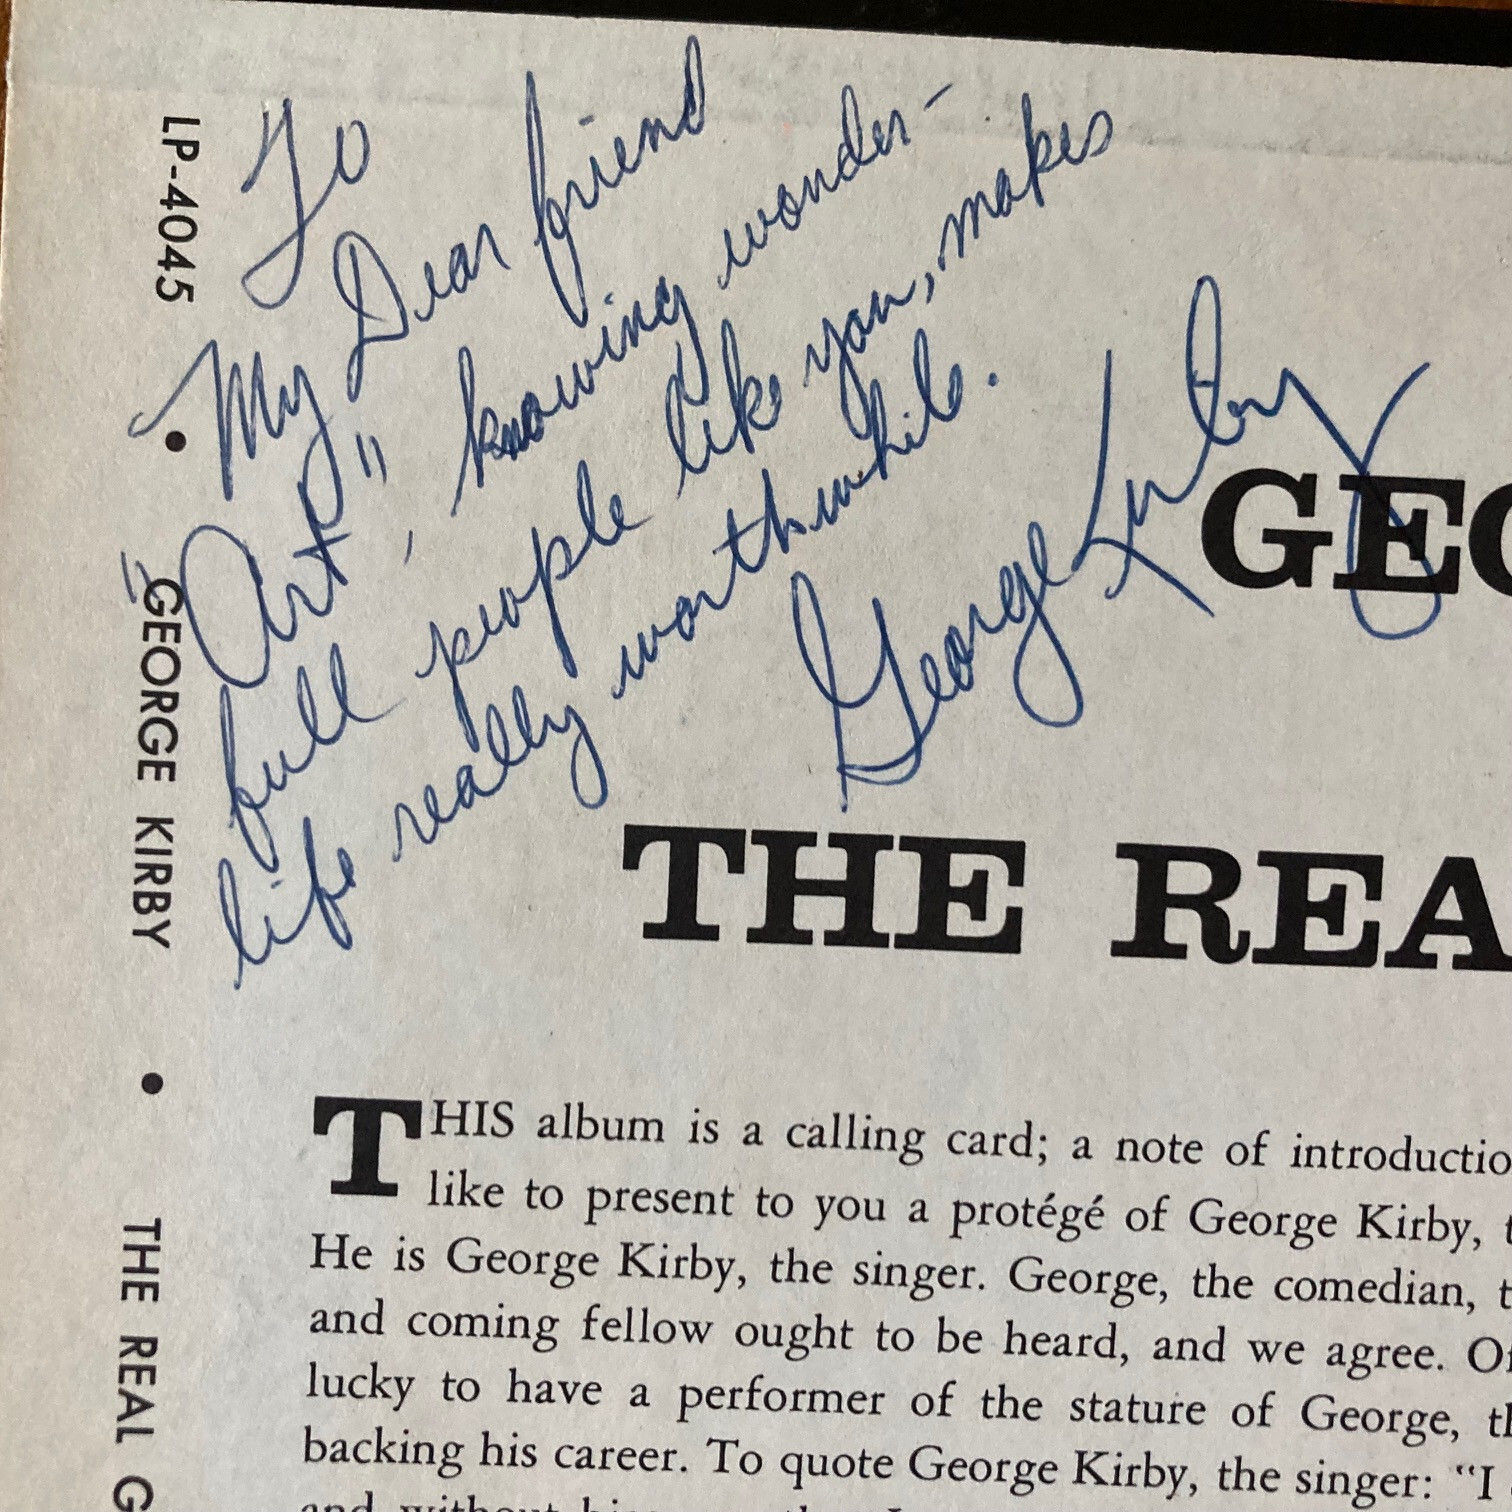 To
My Dear friend
"Art", knowing wonder-
full people like you, makes
life really worthwhile.
George Kirby
LP-4045 • GEORGE KIRBY • THE REAL G
GEO
THE REA
THIS album is a calling card; a note of introductio
like to present to you a protégé of George Kirby, t
He is George Kirby, the singer. George, the comedian, t
and coming fellow ought to be heard, and we agree. O
lucky to have a performer of the stature of George, th
backing his career. To quote George Kirby, the singer: "I
and without